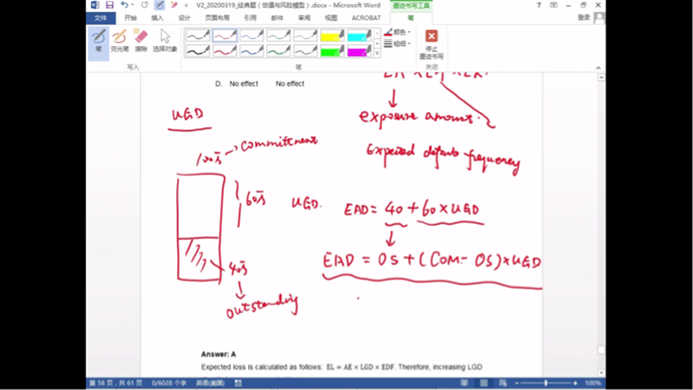 V2_20200319_经典题 (估值与风险模型) .docx - Microsoft Word
墨迹书写工具
登录
文件
开始
插入
设计
页面布局
引用
邮件
审阅
视图
ACROBAT
笔
笔
荧光笔
橡皮擦
选择对象
颜色
粗细
停止
墨迹书写
写入
笔
关闭
D. No effect No effect
UGD
exposure amount.
Expected default frequency
100万 commitment
60万
UGD.
EAD = 40 + 60 × UGD
EAD = OS + (COM - OS) × UGD
40万
outstanding
Answer: A
Expected loss is calculated as follows: EL = AE × LGD × EDF. Therefore, increasing LGD
第 58 页，共 61 页
0/6028 个字
英语(美国)
100%